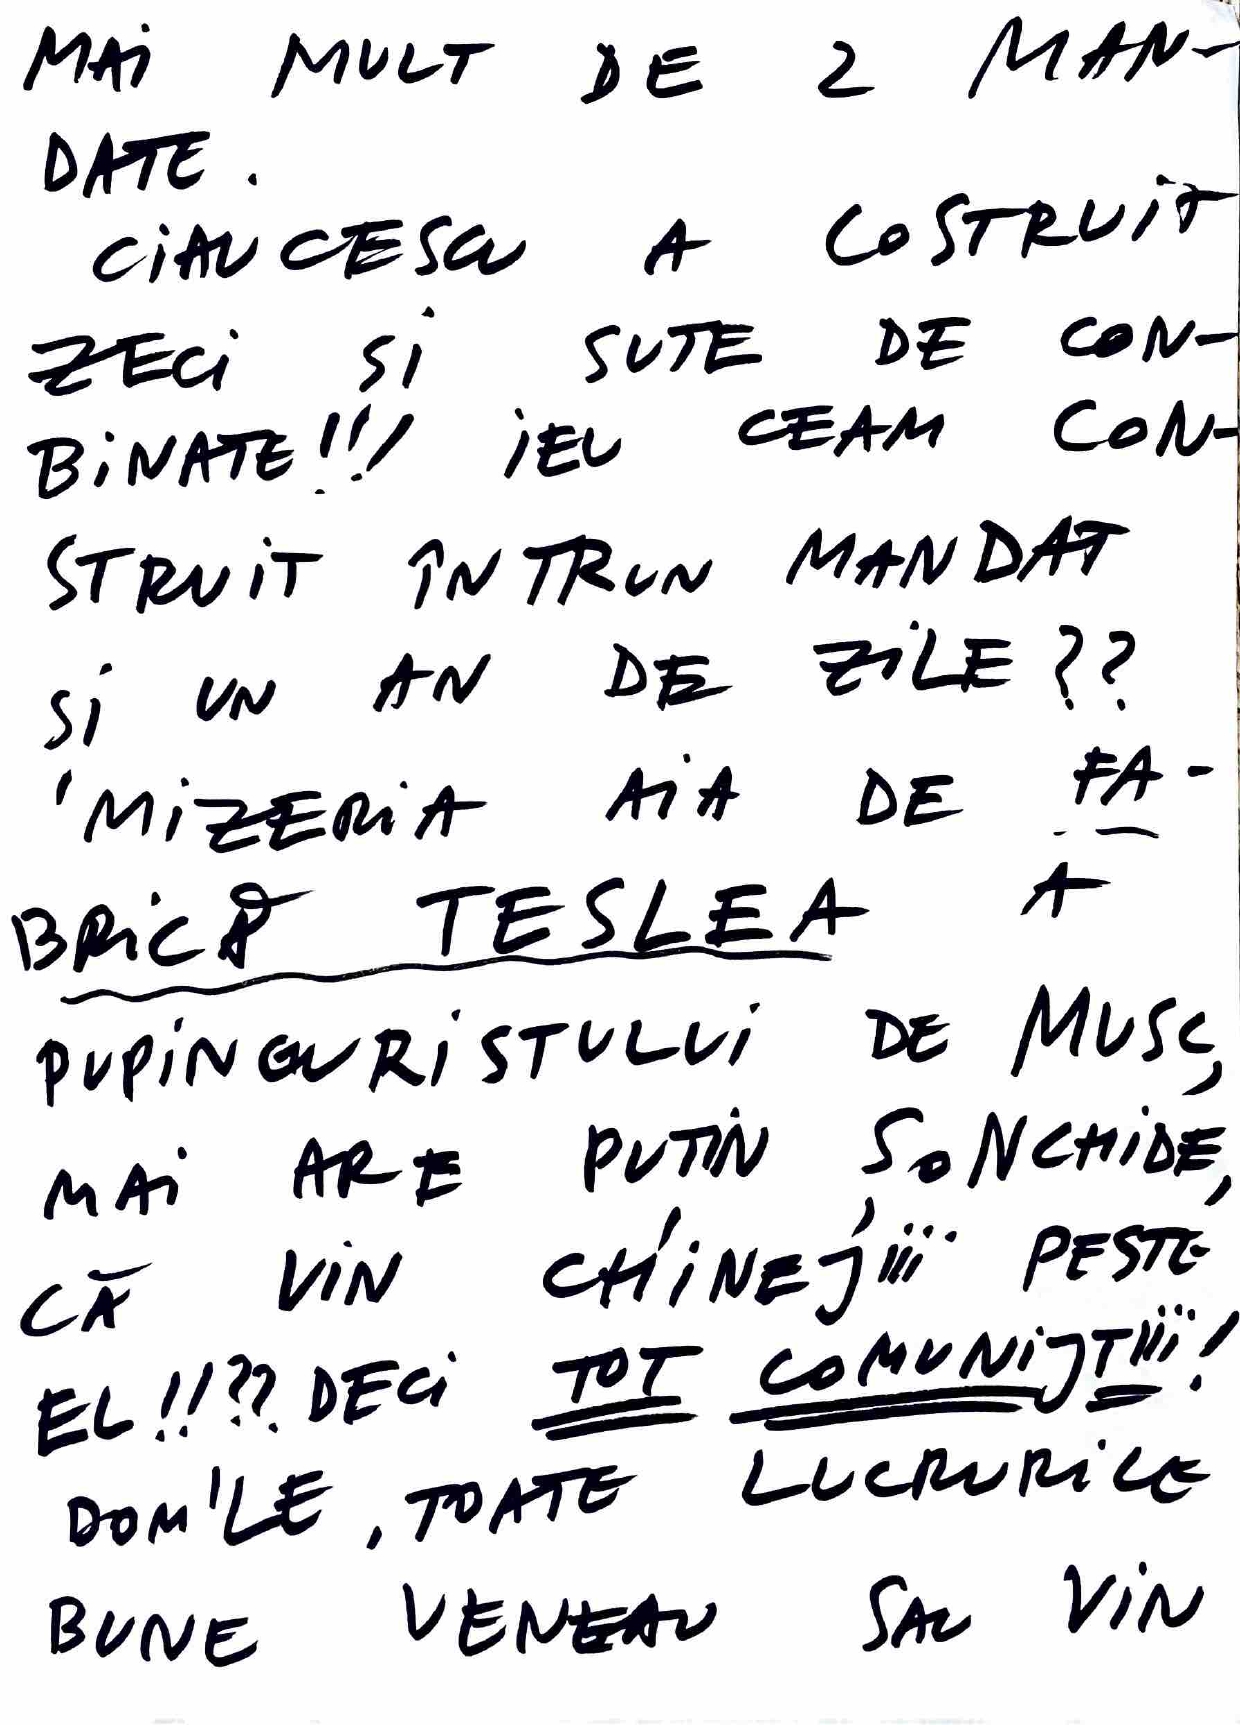 MAi MULT DE 2 MAN-
DATE.
CiAUCESCU A COSTRUiT
ZECi Si SUTE DE CON-
BiNATE!!! iEU CEAM CON-
STRUiT ÎNTRUN MANDAT
Si UN AN DE ZiLE??
'MiZERiA AiA DE FA-
BRiCĂ TESLEA A
PUPiNGURiSTULUi DE MUSC,
MAi ARE PUTiN SĂNCHiDE,
CĂ VIN CH'iNEJ'iii PESTE
EL!!?? DECi TOT COMUNiJTiii!
DOM'LE, TOATE LUCRURiLE
BUNE VENEAU SAU ViN